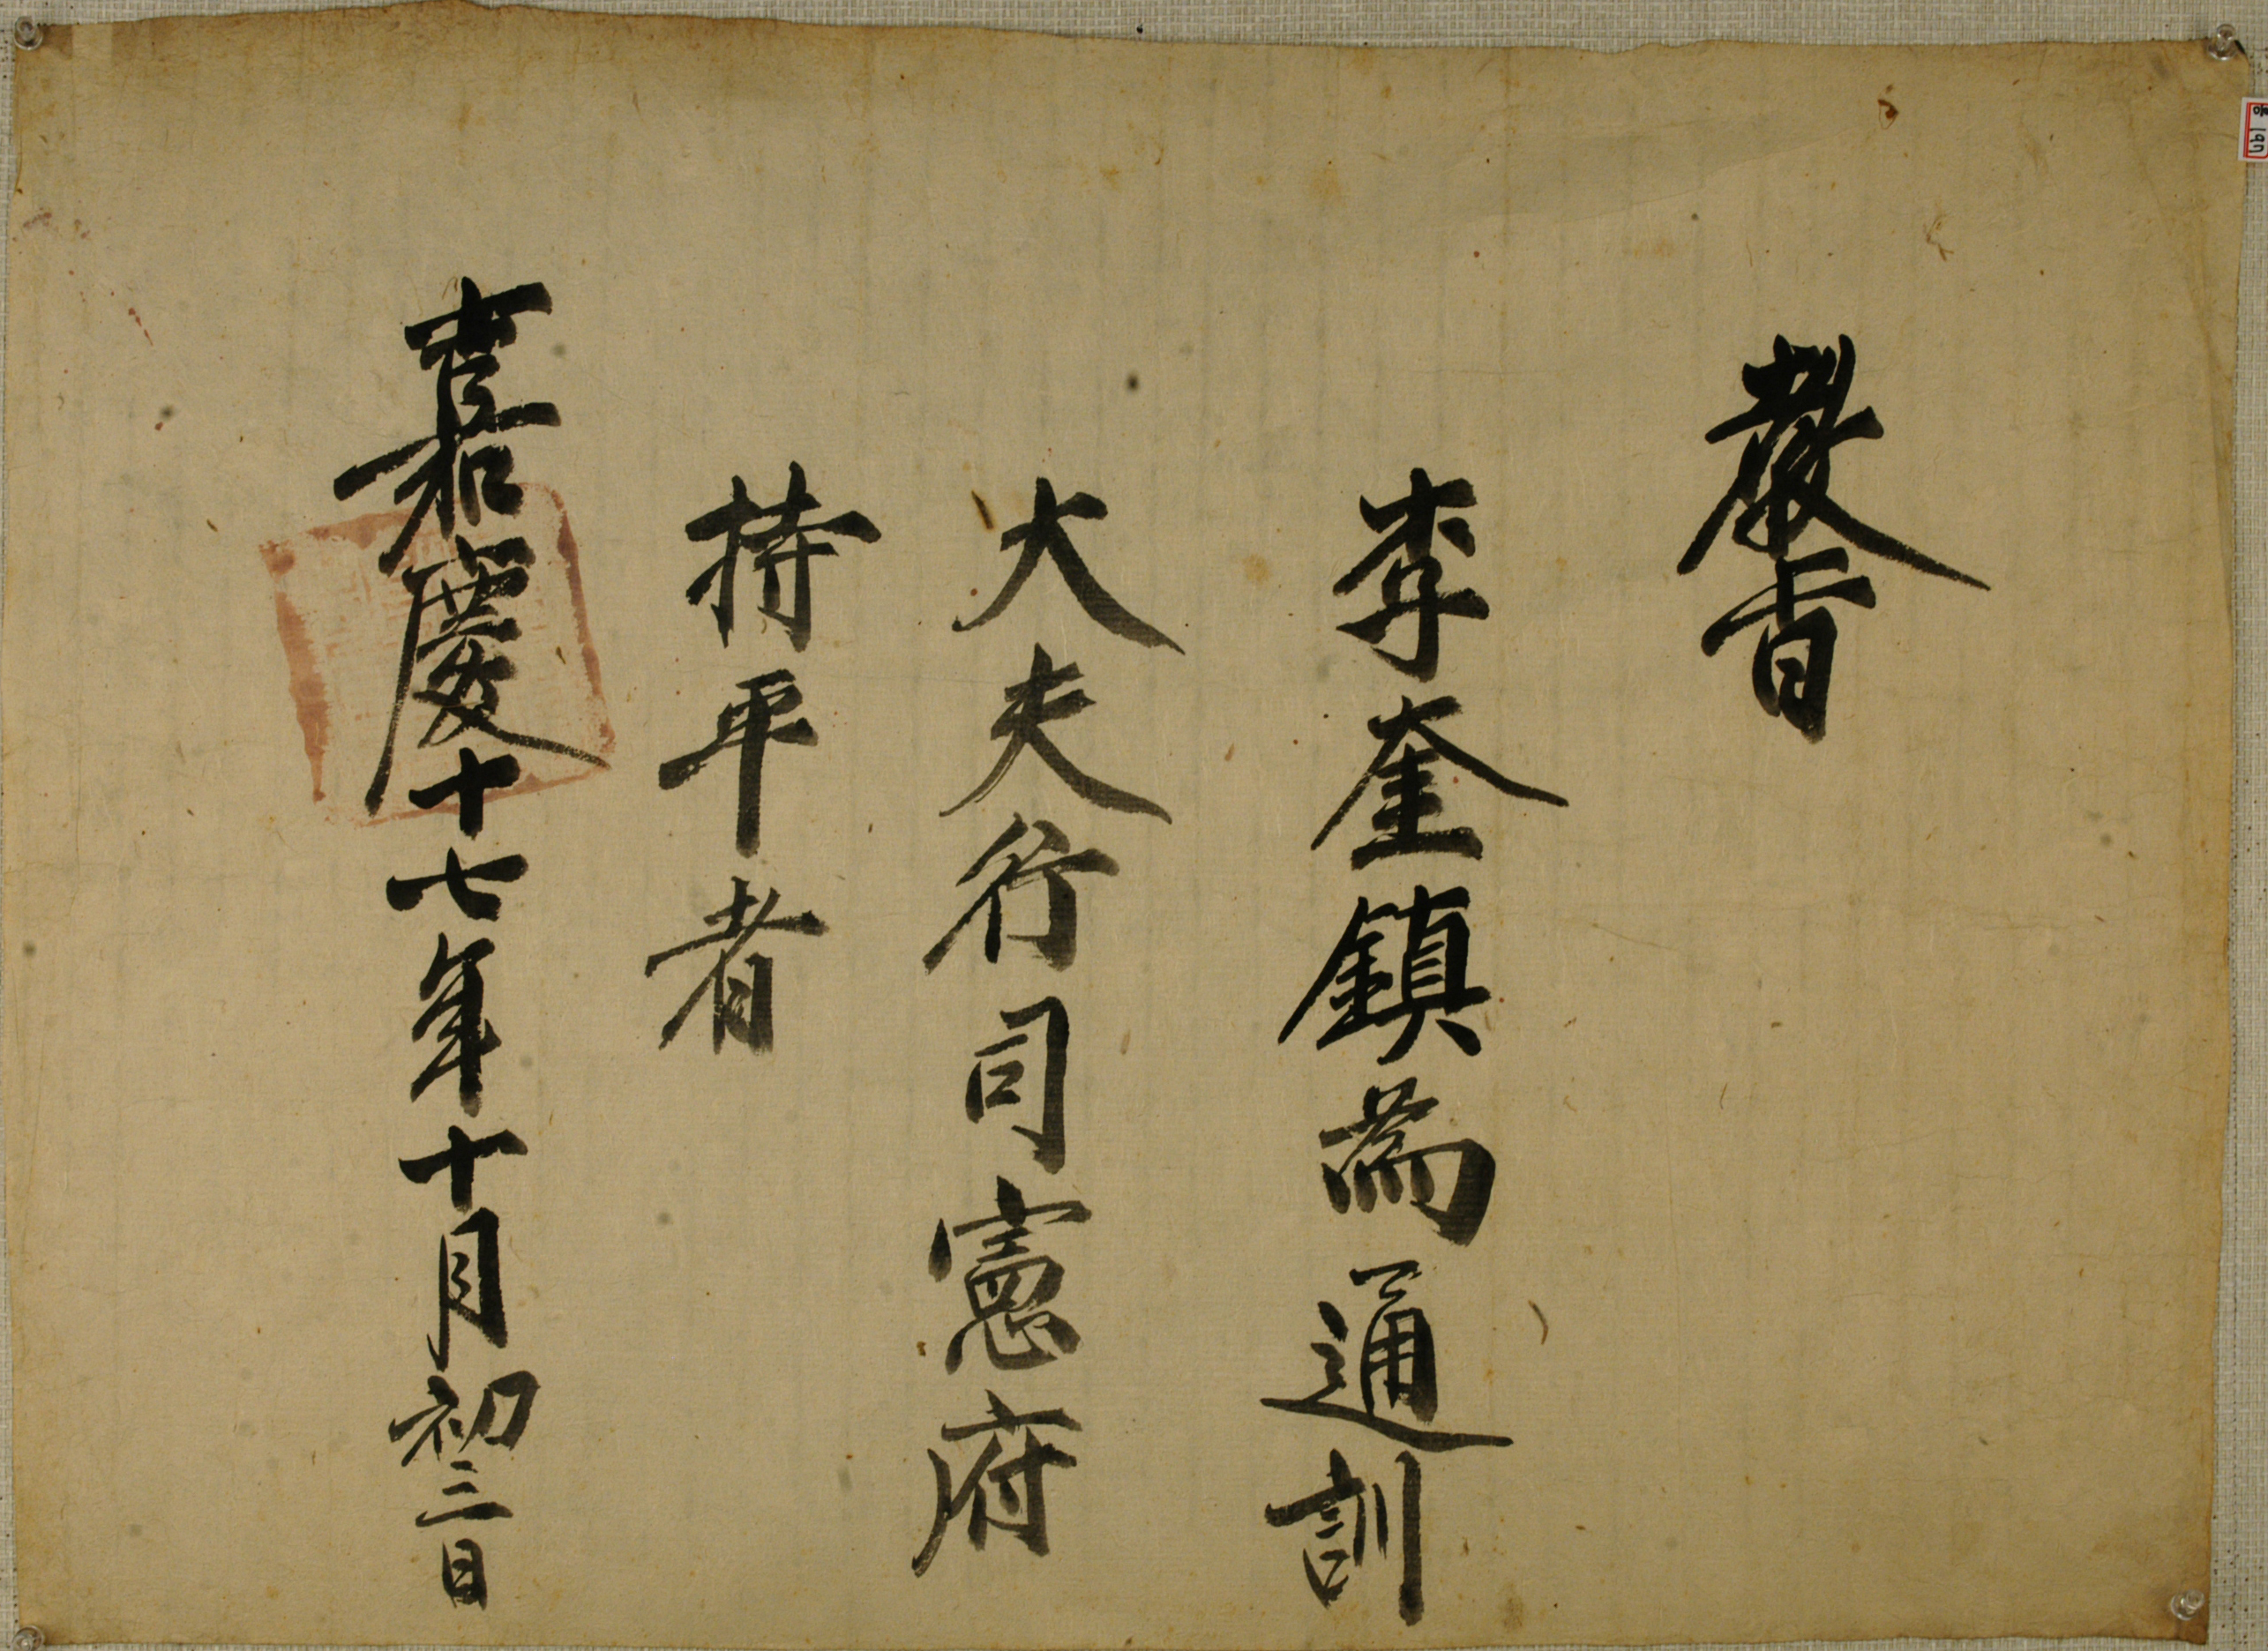 教旨
李奎鎭爲通訓
大夫行司憲府
持平者
嘉慶十七年十月初三日